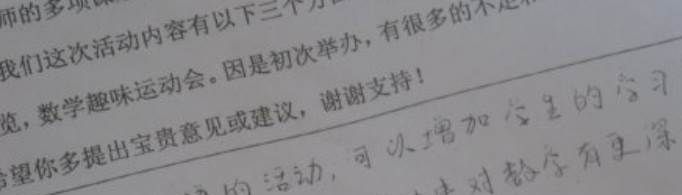 师的多项
我们这次活动内容有以下三个方
览，数学趣味运动会。因是初次举办，有很多的不足
希望你多提出宝贵意见或建议，谢谢支持！
的活动，可以增加学生的学习
对数学有更深